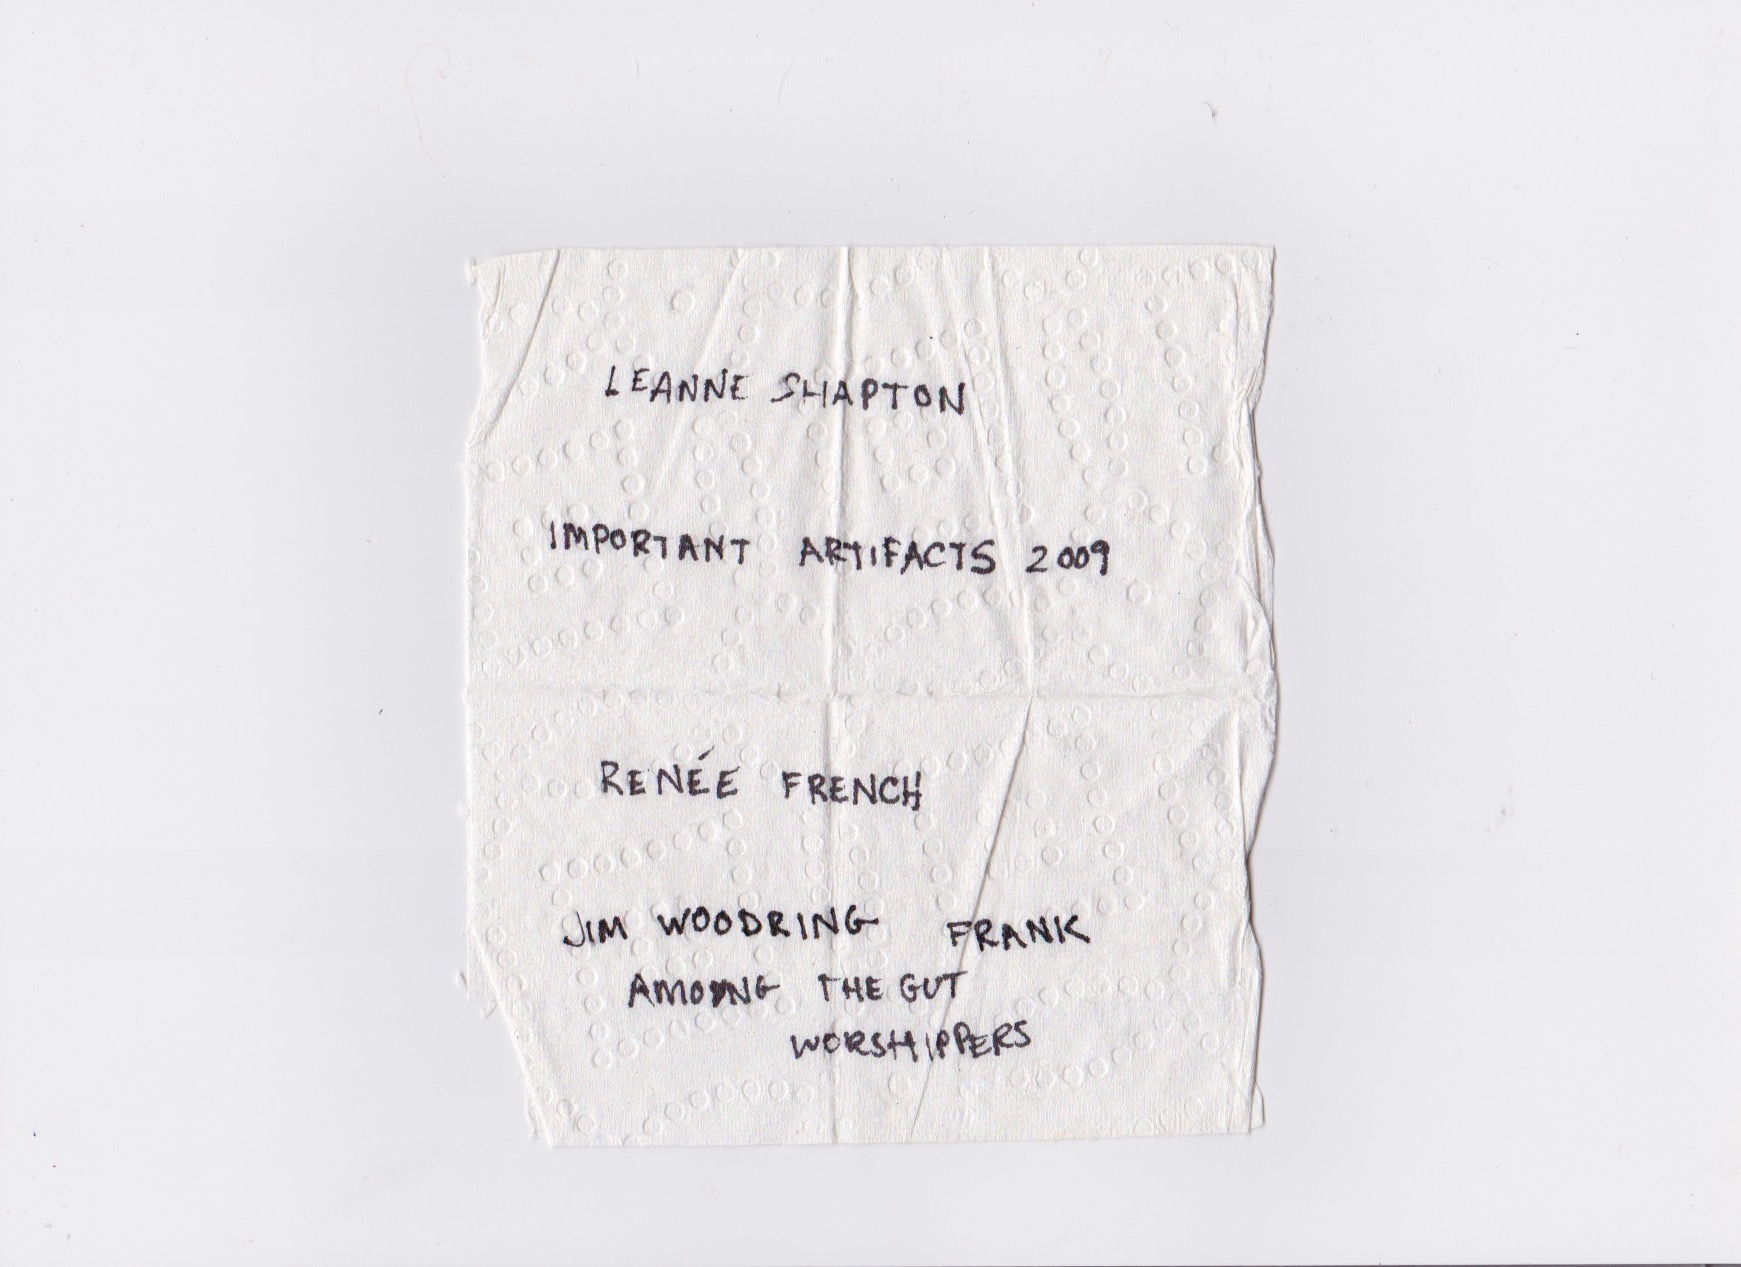 LEANNE SHAPTON
IMPORTANT ARTIFACTS 2009
RENÉE FRENCH
JIM WOODRING FRANK
AMONG THE GUT
WORSHIPPERS